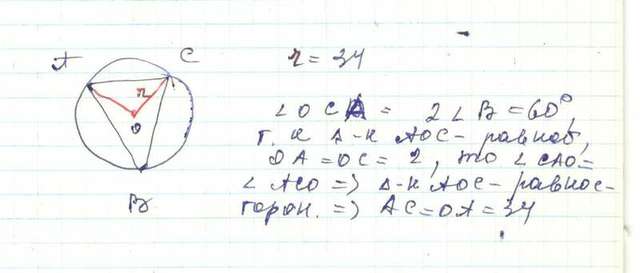 A C
r = 34
r
O
B
∠ O C A = 2 ∠ B = 60°,
т. к Δ-к AOC - равноб,
OA = OC = 2, то ∠ CAO =
∠ ACO => Δ-к AOC - равнос-
торон. => AC = OA = 34